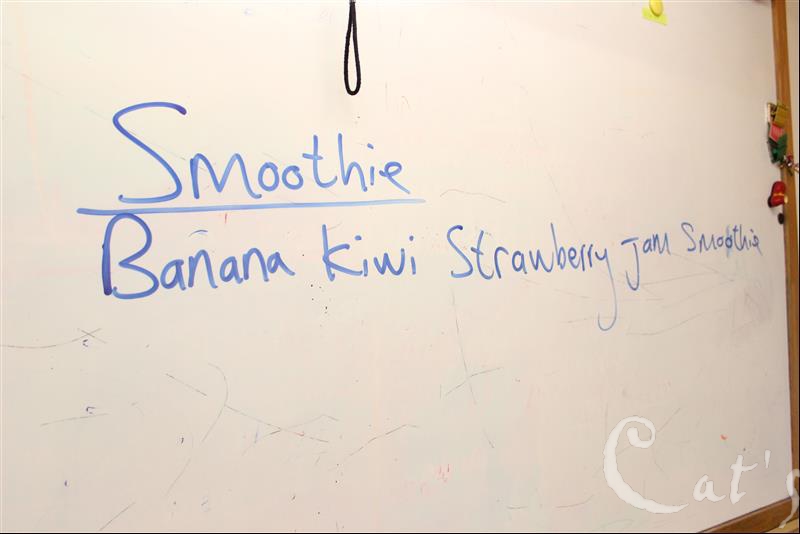 Smoothie
Banana kiwi Strawberry Jam Smoothie
Cat's